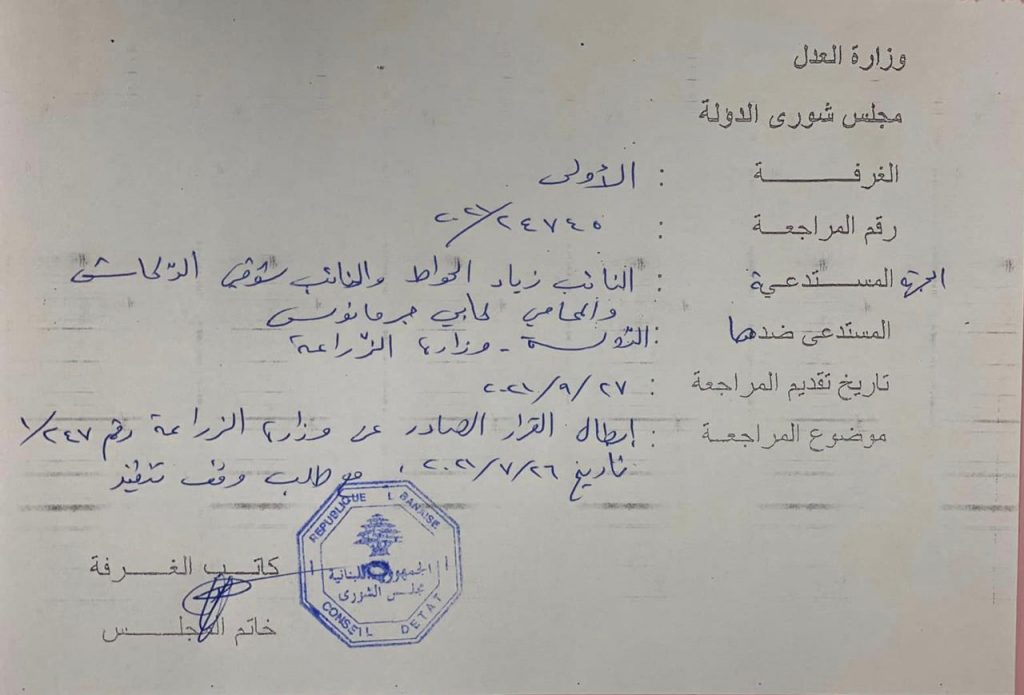 وزارة العدل
مجلس شورى الدولة
الغرفـــــــة : الأولى
رقم المراجعـة : ٢٤٧٤٥/٢٠٢١
الجهة المســتدعـيـة : النائب زياد الحواط والنائب شوقي الدكاش
والمحامي لحابي جرمانوس
المستدعى ضدها : الدولة - وزارة الزراعة
تاريخ تقديم المراجعة : ٢٠٢١/٩/٢٧
موضوع المراجعـة : إبطال القرار الصادر عن وزارة الزراعة رقم ١/٢٤٧
تاريخ ٢٠٢١/٧/٢٦، مع طلب وقف تنفيذ
REPUBLIQUE LIBANAISE
الجمهورية اللبنانية
مجلس الشورى
CONSEIL D'ETAT
كاتــب الغــرفة
خاتم المجلـــس